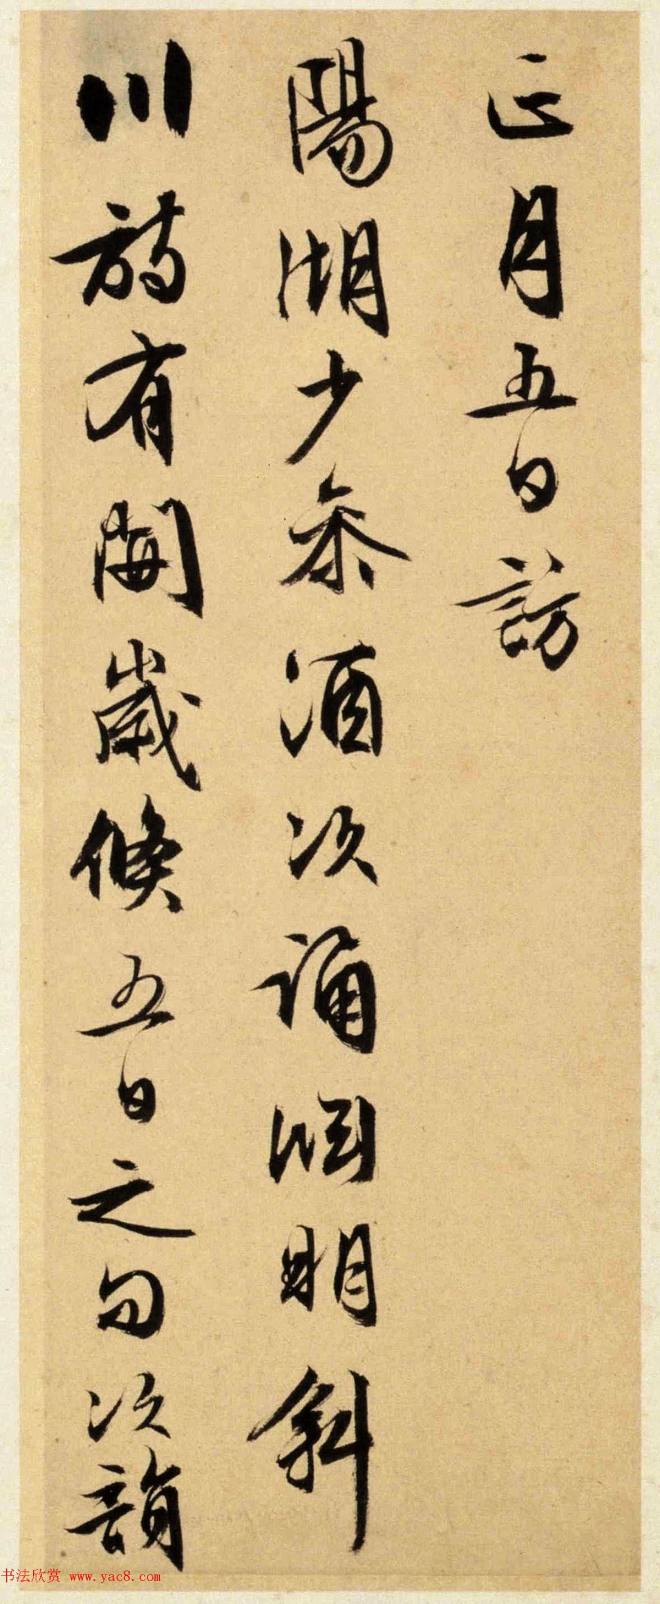 正月五日訪
陽湖少參酒次誦淵明斜
川詩有開歲倏五日之句次韻
书法欣赏 www.yac8.com